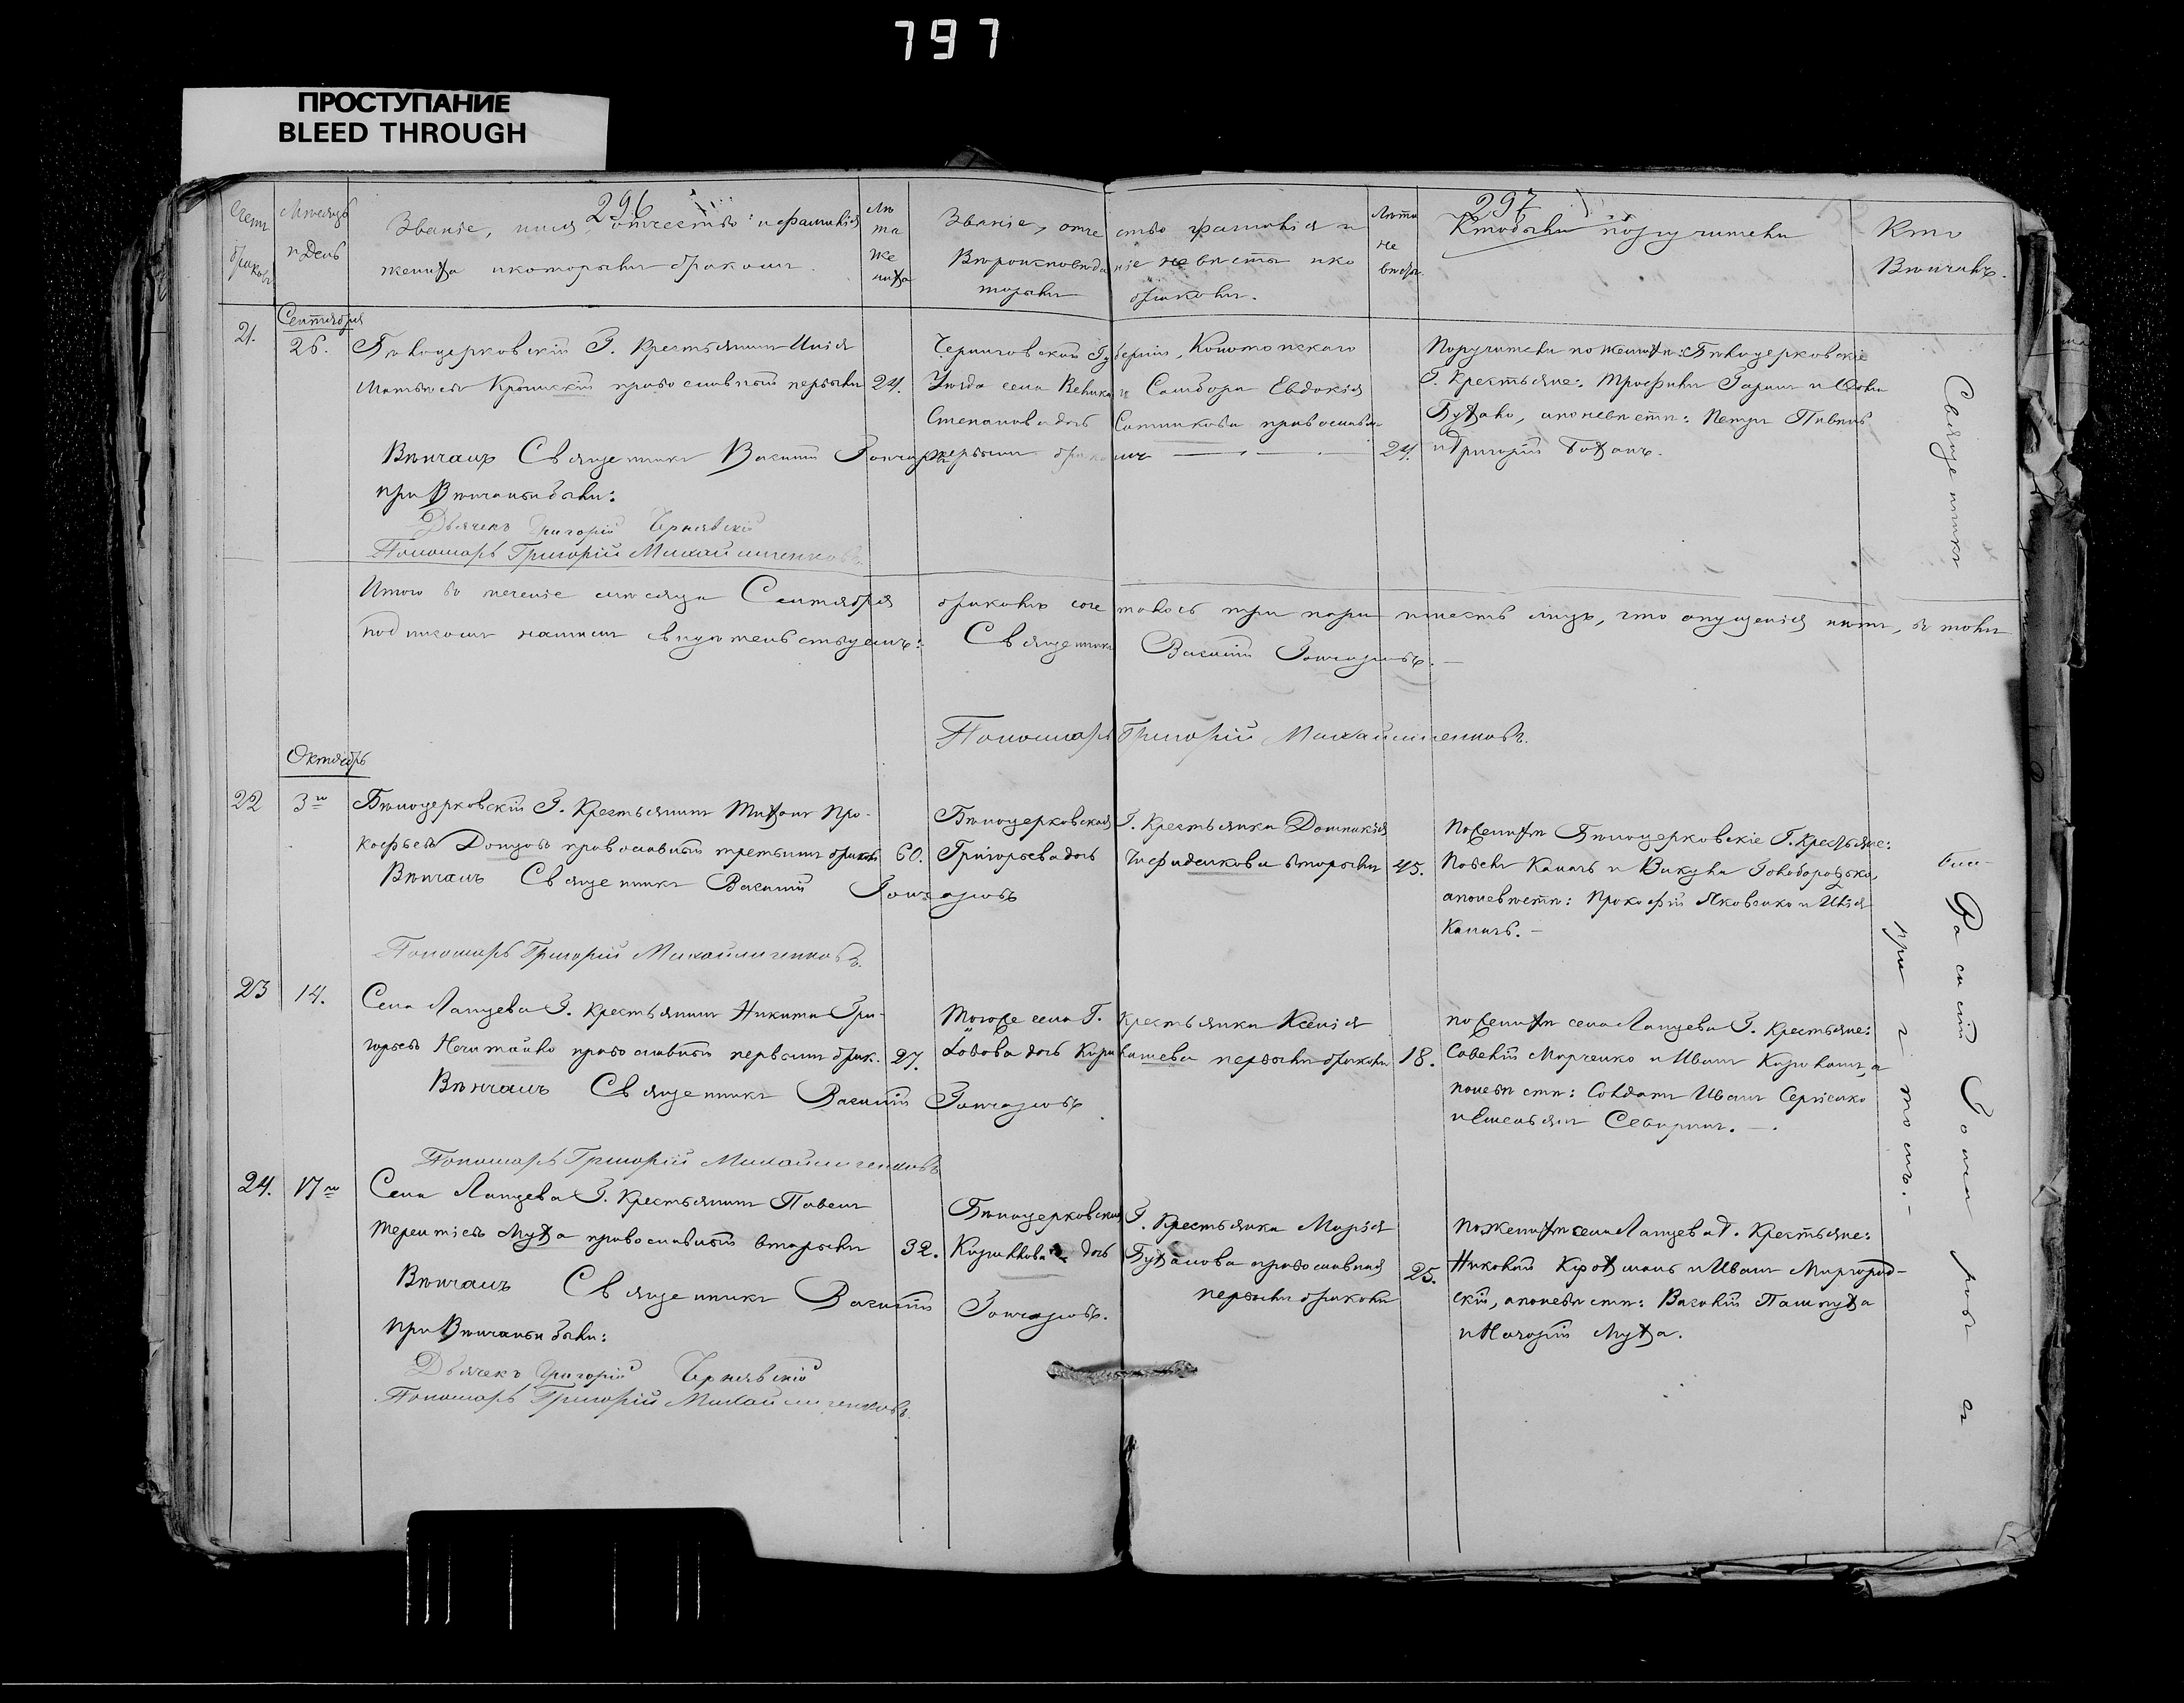 797
ПРОСТУПАНИЕ
BLEED THROUGH
296
297
Счетъ браковъ
Мѣсяцъ и День
Званіе, имя, отчество и фамилія
жениха и которымъ бракомъ.
Лѣта жениха
Званіе, отчество фамилія и
Вѣроисповѣданіе невѣсты и которымъ
бракомъ.
Лѣта невѣсты
Кто были поручители
Кто Вѣнчалъ.
21.
Сентября
26.
Бѣлоцерковскій Г. Крестьянинъ Илія
Матвѣевъ Крымскій православный первымъ
24.
Вѣнчалъ Священникъ Василій Гончаровъ
при Вѣнчаніи были:
Дьячекъ Григорій Чернявскій
Пономарь Григорій Михайличенковъ.
Черниговской Губерніи, Конотопскаго
Уѣзда села Великаго Самбора Евдокія
Степанова дочь Сотникова православн.
первымъ бракомъ
24.
Поручители по женихѣ: Бѣлоцерковскіе
Г. Крестьяне: Трофимъ
Бухало, а по невѣстѣ: Петръ Пивень
и Григорій Боханъ.
Итого въ теченіе мѣсяца Сентября браковъ сочеталось три пары шесть лицъ, что опущенія нѣтъ, въ томъ
подписомъ нашимъ свидѣтельствуемъ: Священникъ Василій Гончаровъ. —
Пономарь Григорій Михайличенковъ.
Октябрь
22
3го
Бѣлоцерковскій Г. Крестьянинъ Тиханъ Про-
кофьевъ Донцовъ православный третьимъ бракомъ
60.
Вѣнчалъ Священникъ Василій Гончаровъ
Пономарь Григорій Михайличенковъ.
Бѣлоцерковская Г. Крестьянка Домникія
Григорьева дочь вторымъ
45.
По женихѣ Бѣлоцерковскіе Г. Крестьяне:
Павелъ и Викула Головородько,
а по невѣстѣ: Прокофій Яковенко и Илія
23
14.
Села Лапцева Г. Крестьянинъ Никита Гри-
горьевъ Нечитайло православный первымъ брак.
27.
Вѣнчалъ Священникъ Василій Гончаровъ.
Пономарь Григорій Михайличенковъ
Того же села Г. Крестьянка Ксенія
дочь первымъ бракомъ
18.
по женихѣ села Лапцева Г. Крестьяне:
Савелій Марченко и Иванъ а
по невѣстѣ: Солдатъ Иванъ Сергіенко
и Емельянъ
24.
17го
Села Лапцева Г. Крестьянинъ Павелъ
Терентіевъ Муха православный вторымъ
32.
Вѣнчалъ Священникъ Василій Гончаровъ.
при Вѣнчаніи были:
Дьячекъ Григорій Чернявскій
Пономарь Григорій Михайличенковъ.
Бѣлоцерковская Г. Крестьянка Марія
Кириллова дочь Бухалова православная
первымъ бракомъ
25.
По женихѣ села Лапцева Г. Крестьяне:
Николай Крохмаль и Иванъ Миргород-
скій, а по невѣстѣ: Василій
и Муха.
Священникъ Василій Гончаровъ
при томъ. —